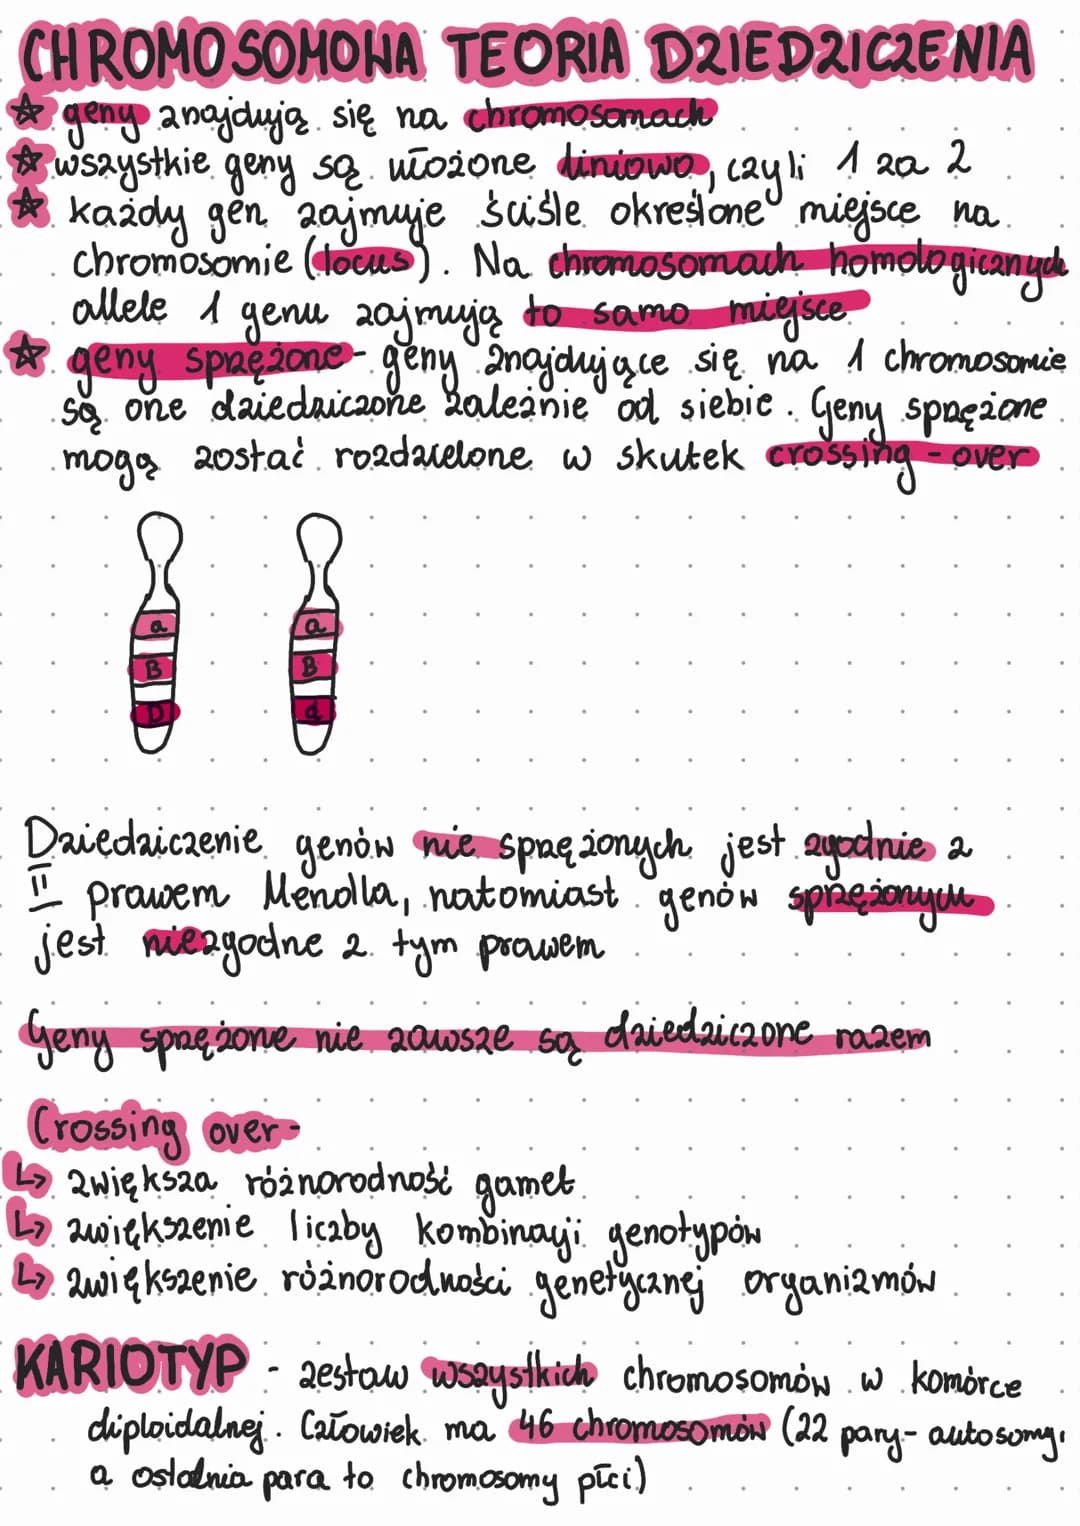 CHROMOSOMOWA TEORIA DZIEDZICZENIA
geny znajdują się na chromosomach
wszystkie geny są ułożone liniowo, czyli 1 za 2
każdy gen zajmuje ściśle określone miejsce na
chromosomie (locus). Na chromosomach homologicznych
allele 1 genu zajmują to samo miejsce
geny sprzężone - geny znajdujące się na 1 chromosomie
są one dziedziczone zależnie od siebie. Geny sprzężone
mogą zostać rozdzielone w skutek crossing-over
a a
B B
D d
Dziedziczenie genów nie sprzężonych jest zgodnie z
II prawem Mendla, natomiast genów sprzężonych
jest niezgodne z tym prawem
Geny sprzężone nie zawsze są dziedziczone razem
Crossing over-
↳ zwiększa różnorodność gamet
↳ zwiększenie liczby kombinacji genotypów
↳ zwiększenie różnorodności genetycznej organizmów
KARIOTYP - zestaw wszystkich chromosomów w komórce
diploidalnej. Człowiek ma 46 chromosomów (22 pary- autosomy,
a ostatnia para to chromosomy płci)